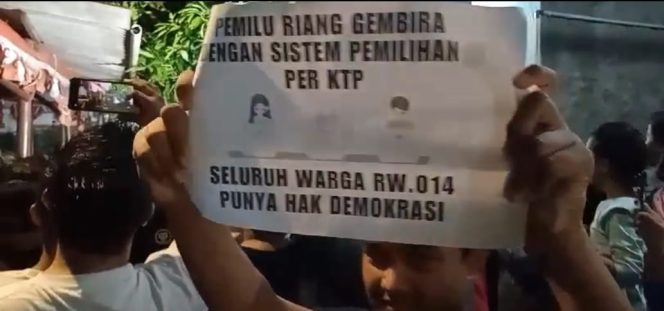 PEMILU RIANG GEMBIRA
DENGAN SISTEM PEMILIHAN
PER KTP
SELURUH WARGA RW.014
PUNYA HAK DEMOKRASI